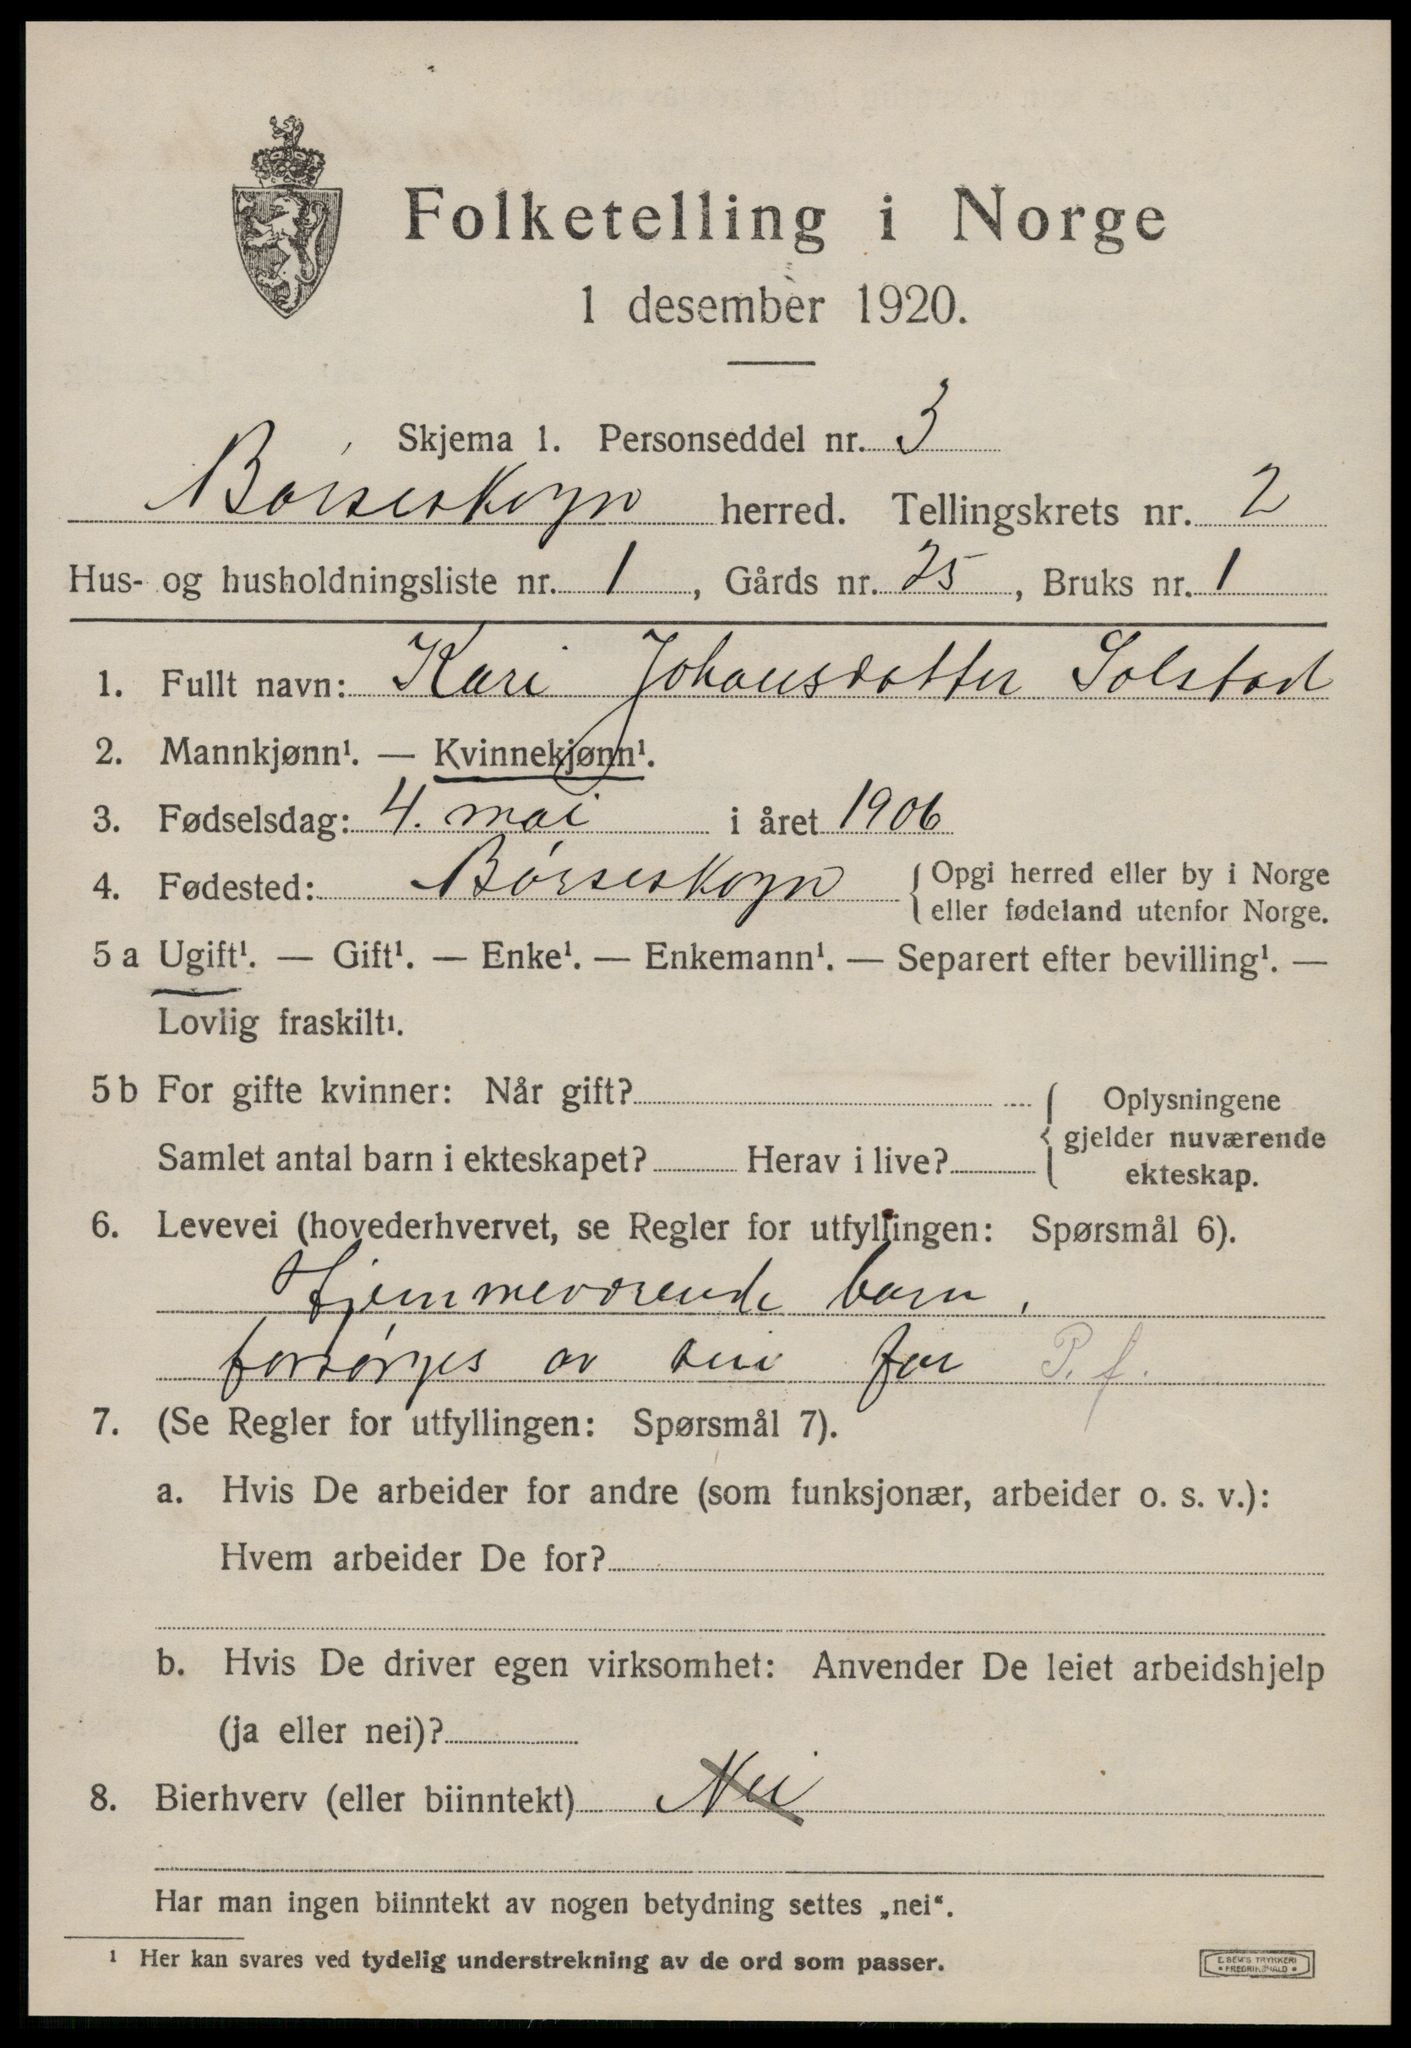 Folketelling i Norge
1 desember 1920.
Skjema 1. Personseddel nr. 3
Børseskogn herred. Tellingskrets nr. 2
Hus- og husholdningsliste nr. 1, Gårds nr. 25, Bruks nr. 1
1. Fullt navn: Kari Johansdatter Solstad
2. Mannkjønn¹. — Kvinnekjønn¹.
3. Fødselsdag: 4. mai i året 1906
4. Fødested: Børseskogn { Opgi herred eller by i Norge
eller fødeland utenfor Norge.
5 a Ugift¹. — Gift¹. — Enke¹. — Enkemann¹. — Separert efter bevilling¹. —
Lovlig fraskilt¹.
5 b For gifte kvinner: Når gift? { Oplysningene
gjelder nuværende
Samlet antal barn i ekteskapet? Herav i live?
ekteskap.
6. Levevei (hovederhvervet, se Regler for utfyllingen: Spørsmål 6).
Hjemmeværende barn,
forsørges av sin far P. f.
7. (Se Regler for utfyllingen: Spørsmål 7).
a. Hvis De arbeider for andre (som funksjonær, arbeider o. s. v.):
Hvem arbeider De for?
b. Hvis De driver egen virksomhet: Anvender De leiet arbeidshjelp
(ja eller nei)?
8. Bierhverv (eller biinntekt) Nei
Har man ingen biinntekt av nogen betydning settes „nei“.
¹ Her kan svares ved tydelig understrekning av de ord som passer.
E. SEM'S TRYKKERI
• FREDRIKSHALD •